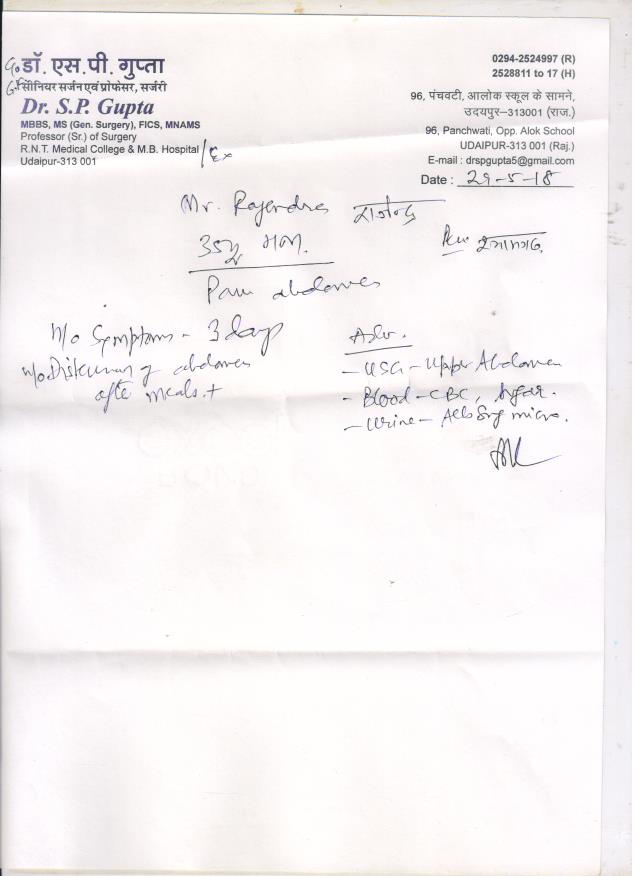 डॉ. एस.पी. गुप्ता
सीनियर सर्जन एवं प्रोफेसर, सर्जरी
Dr. S.P. Gupta
MBBS, MS (Gen. Surgery), FICS, MNAMS
Professor (Sr.) of Surgery
R.N.T. Medical College & M.B. Hospital /Ex
Udaipur-313 001
0294-2524997 (R)
2528811 to 17 (H)
96, पंचवटी, आलोक स्कूल के सामने,
उदयपुर–313001 (राज.)
96, Panchwati, Opp. Alok School
UDAIPUR-313 001 (Raj.)
E-mail : drspgupta5@gmail.com
Date : 29-5-18
Mr. Rajendra
Pain abdomen
H/o Symptoms - 3 days
abdomen
after meals +
Adv.
- USG - Upper Abdomen
- Blood - CBC, Sugar.
- Urine - Alb Sug micro.